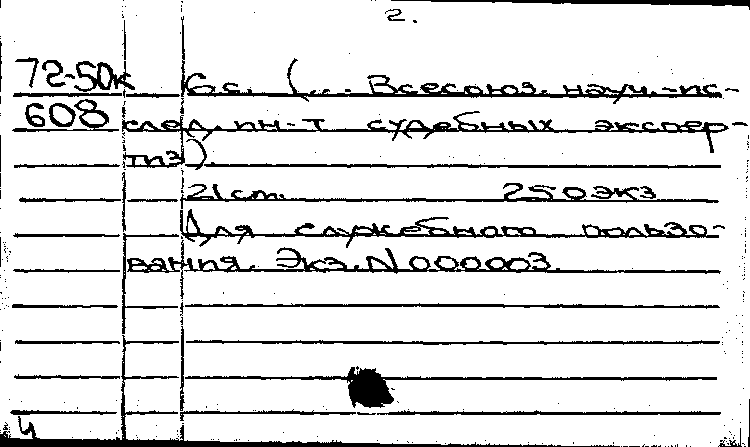 2.
72-50к 6 с. (... Всесоюз. науч.-ис-
608 след. ин-т судебных экспер-
тиз).
21 cm. 250 экз
Для служебного пользо-
вания. Экз. N 000003.
4